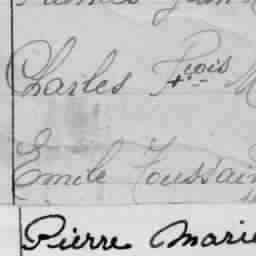 Charles Fçois
Emile Toussain
Pierre Marie